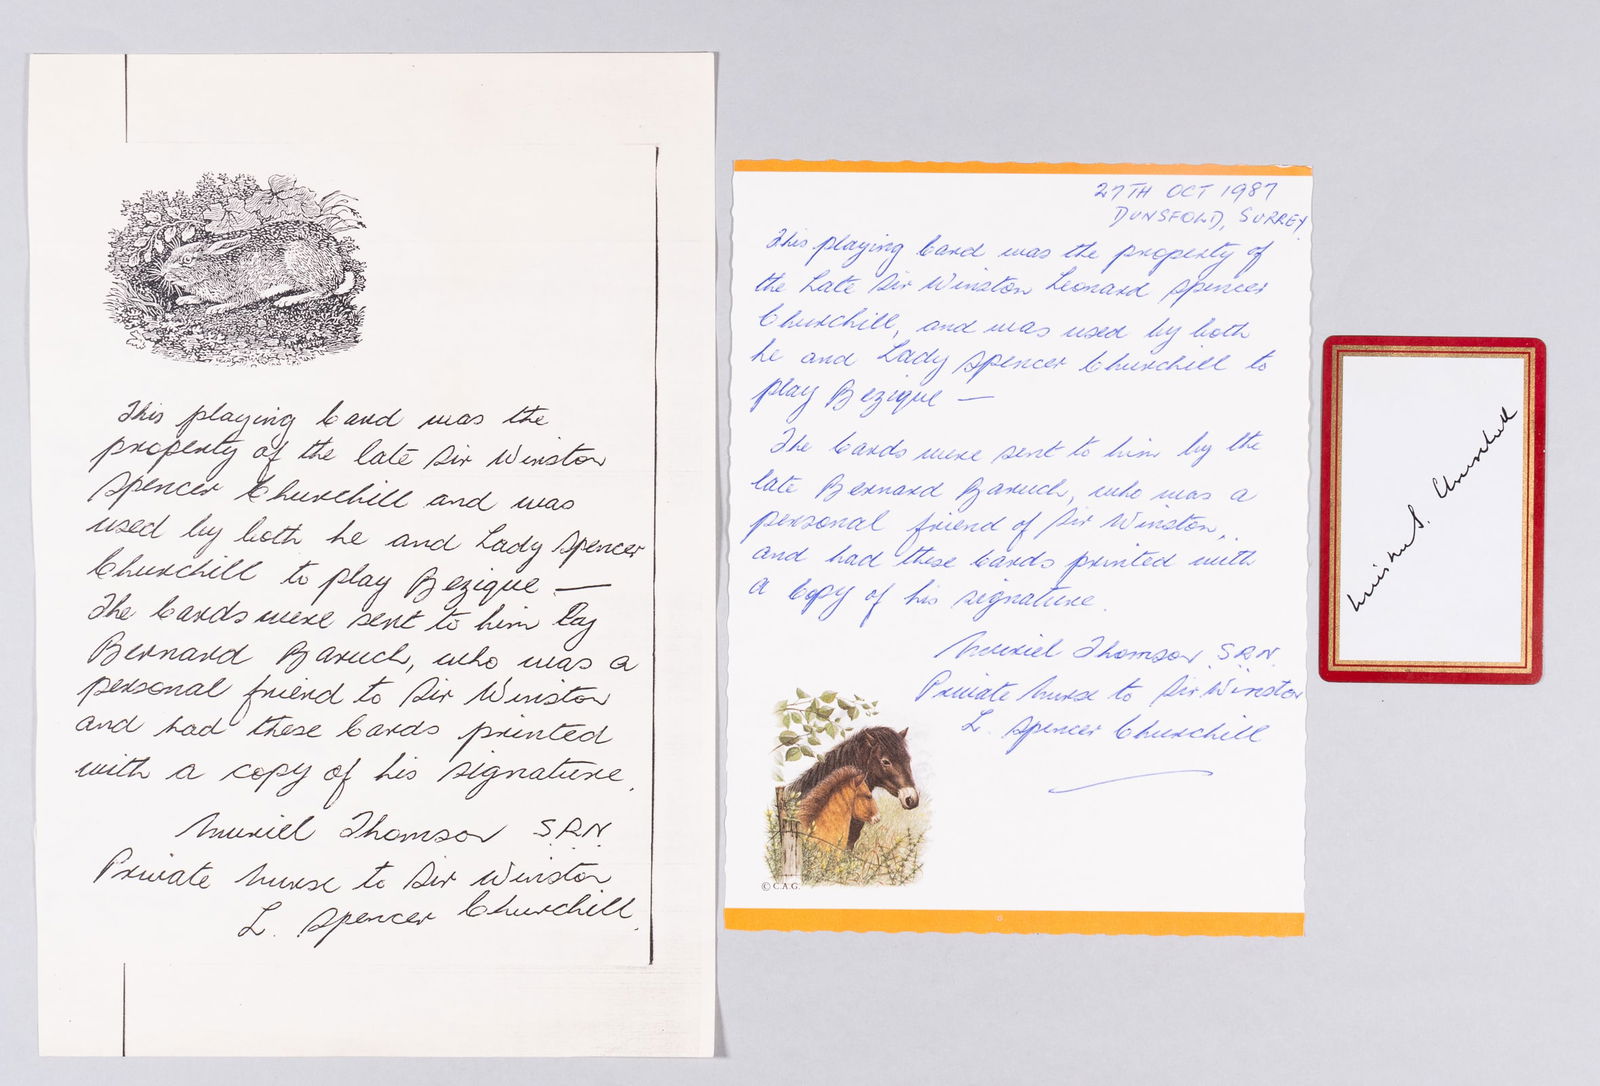 This playing Card was the
property of the late Sir Winston
Spencer Churchill and was
used by both he and Lady Spencer
Churchill to play Bezique —
The Cards were sent to him by
Bernard Baruch, who was a
personal friend to Sir Winston
and had these Cards printed
with a copy of his signature.
Muriel Thomson S.R.N.
Private Nurse to Sir Winston
L. Spencer Churchill.
27TH OCT 1987
DUNSFOLD, SURREY
This playing Card was the property of
the Late Sir Winston Leonard Spencer
Churchill, and was used by both
he and Lady Spencer Churchill to
play Bezique —
The Cards were sent to him by the
late Bernard Baruch, who was a
personal friend of Sir Winston,
and had these Cards printed with
a Copy of his signature.
Muriel Thomson S.R.N.
Private Nurse to Sir Winston
L. Spencer Churchill
© C.A.G.
Winston S. Churchill